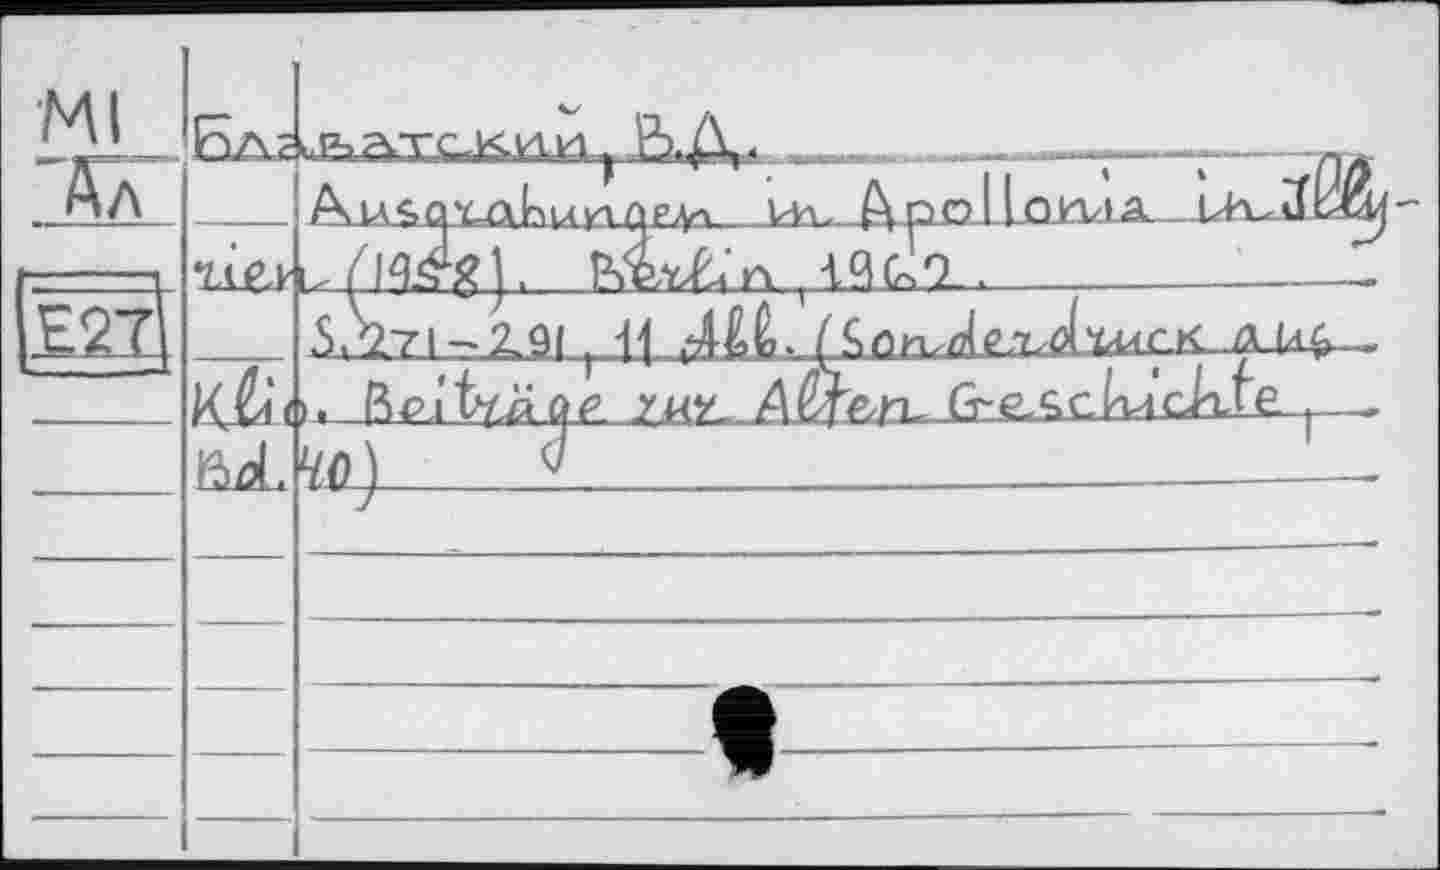 М1
Ал
Е27
Блаватский, В.Д.
Ausgrabungen in Apollonia in Illy-
rien (1958). Berlin, 1962.
S. 271-291, 11 Abb. (Sonderdruck aus
Klio. Beiträge zur Alten Geschichte,
Bd. 40)